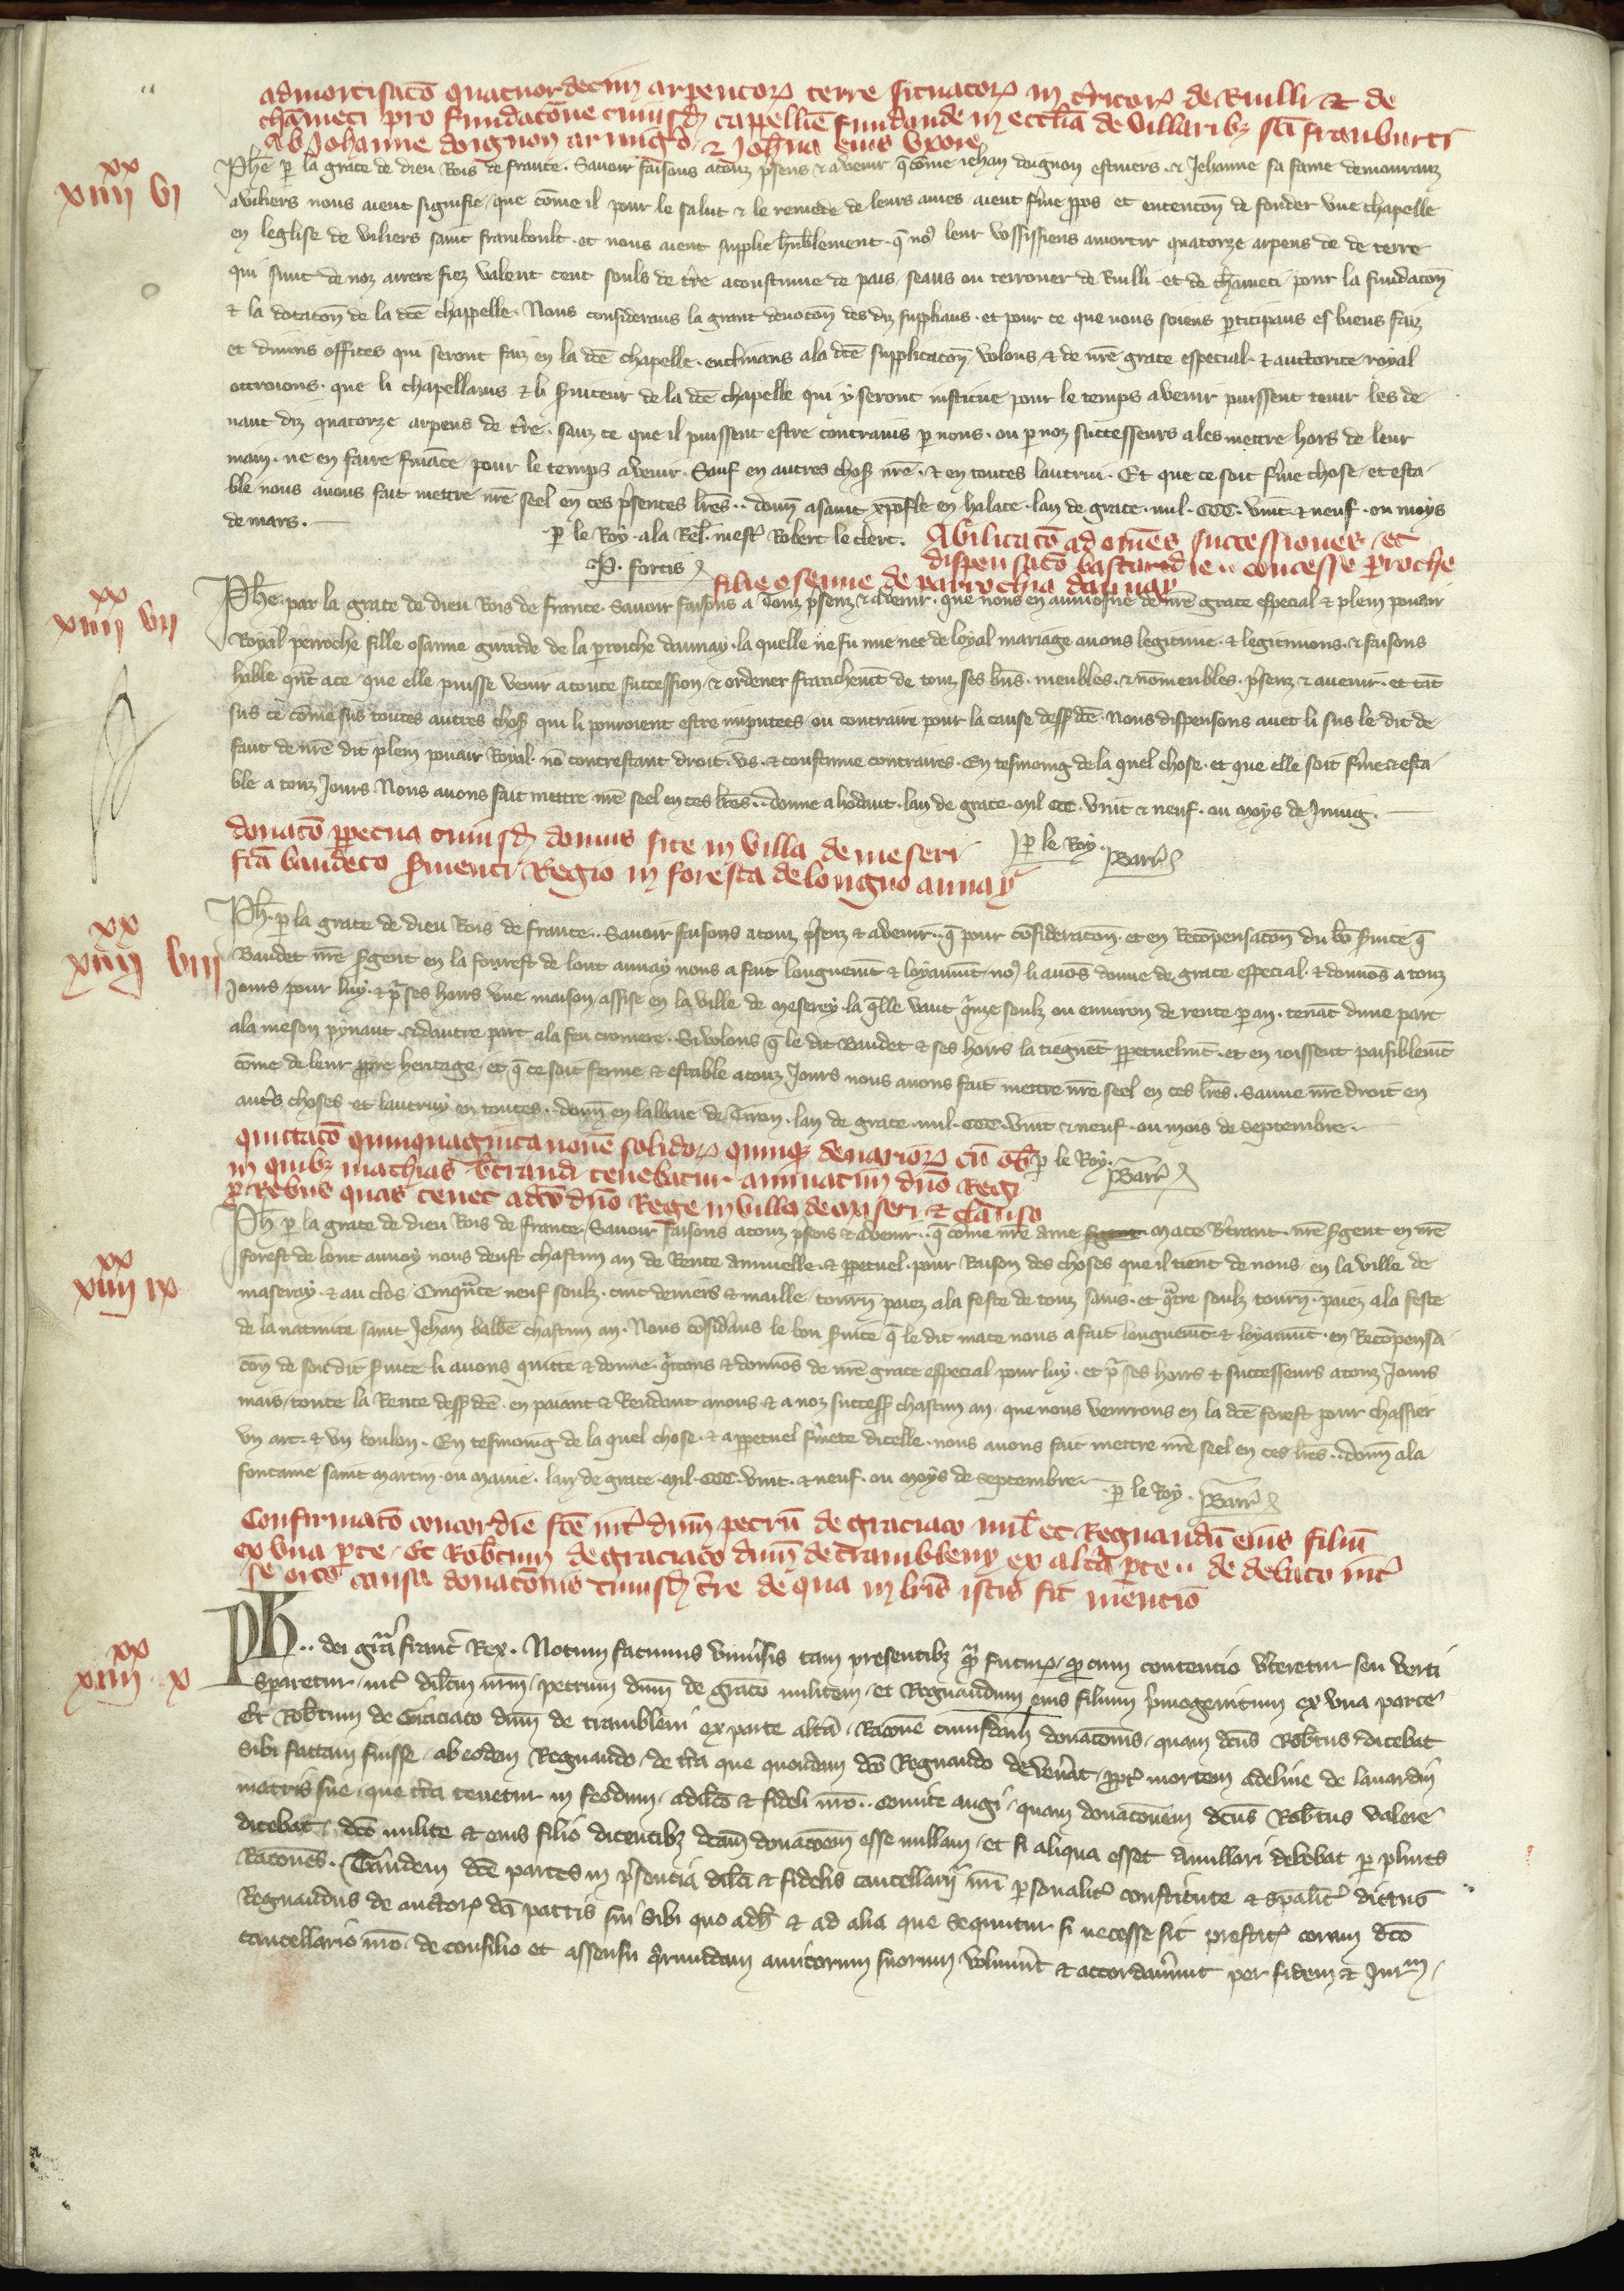 admortisacō quatuordecim arpentoꝝ terre situatoꝝ in t̄ritorꝝ de Ruilli & de
chāmeti pro fundacōne cuiusdꝫ cappellie fundande in eccl̄ia de villaribꝫ sc̄i franburti
Ab Johanne doignon armiḡo & Joh̄na eius uxore
xiiii^xx vi
Ph̄e p̲ la grace de dieu Rois de france. Savoir faisons a touz p̄sens & avenir q̄ cōme iehan doignon escuiers . & Jehanne sa fame demouranz
a viliers nous aient signifie / que cōme il pour le salut & le remede de leurs ames aient fīme ppos et entencōn de fonder une chapelle
en leglise de viliers saint franboult . et nous aient supplie hūblement . q̄ no9 leur vossissiens amortir quatorze arpens de de terre
qui sunt de noz arrere fiez valent cent souls de t̄re a coustume de pais seans ou terrouer de Ruilli et de chāmeti pour la fundacōn
& la dotacōn de la dc̄e chappelle . Nous considerans la grant devocōn des diz supplians . et pour ce que nous soiens p̲ticipans es biens faiz
et divins offices qui seront faiz en la dc̄e chapelle . enclinans a la dc̄e supplicacōn volons & de nr̄e grace especial . & auctorite royal
ottroions . que li chapellains & li s̄viteur de la dc̄e chapelle qui y seront institue pour le temps avenir puissent tenir les de-
vant diz quatorze arpens de t̄re . sanz ce que il puissent estre contrains p̲ nous . ou p̲ noz successeurs a les mettre hors de leur
main . ne en faire finance / pour le temps avenir . Sauf en autres choses nr̄e . & en toutes lautrui . Et que ce soit f̄me chose / et esta-
ble nous avons fait mettre nr̄e seel en ces p̄sentes lr̄es .. donn̄ a saint xp̄ofle en halate . lan de grace . mil . ccc . vint . & neuf . ou moys
de mars .
p̲ le Roy . a la Rel̄ . mest̄ Robert le clerc .
P . fortis
Abilitacō ad om̄es successiones / et
dispensacō bastardie .. concesse p̲roche
filie osenne de parrochia daunay
xiiii^xx vii
Ph̄e . par la grace de dieu Rois de france . Savoir faisons a Touz p̄senz & avenir . que nous en aumosne de nr̄e grace especial & plein pouair
Royal perroche fille osanne girarde de la p̲roiche daunay . la quelle ne fu mie nee de loyal mariage avons legitime . & legitimons . & faisons
hable q̄nt a ce que elle puisse venir a toute succession / & ordener franchem̄t de touz ses biēs . meubles . & nōmeubles . p̄senz & avenir . et tāt
sus ce cōme sus toutes autres choses qui li pouroient estre imputees ou contraire pour la cause dess9 dc̄e . Nous dispensons avec li sus le dit de-
faut de nr̄e dit plein pouair Royal . nō contrestant droit . us . & coustume contraires . En tesmoing de la quel chose . et que elle soit f̄me & esta-
ble a touz Jours Nous avons fait mettre nr̄e seel en ces lr̄es .. donne a hodanc . lan de grace . mil ccc . vint & neuf . ou moys de Juing .
p̲ le Roy .
Barr̄
donacō ppetua cuiusdꝫ domus site in villa de meseri
fc̄a baudeto s̄vienti Regio in foresta de longuo aunay
xiiii^xx viii
Ph̄ . p̲ la grace de dieu Rois de france .. Savoir faisons a touz p̄senz & avenir .. q̄ pour cōsideracōn . et en Recōpensacōn du bō s̄vice q̄
Baudet nr̄e s̄gent en la fourest de lonc aunay nous a fait longuem̄t & loyaum̄t no9 li avōs donne de grace especial . & donnōs a touz
jours pour luy . & p̄ ses hoirs une maison assise en la ville de meserey . la q̄lle vaut q̄nze soulz ou environ de rente p̲ an . tenāt dune part
a la meson pynaut . & dautre part a la feu cromere . Si volons q̄ le dit Baudet & ses hoirs la tiegnēt ppetuelmt̄ . et en ioissent paisiblem̄t
cōme de leur ppre heritage . et q̄ ce soit ferme & estable a touz Jours nous avons fait mettre nr̄e seel en ces lr̄es . Sauve nr̄e droit en
aut̄s choses et lautruy en toutes .. donn̄ en labbaie de Tiron . lan de grace . mil . ccc . vint & neuf . ou mois de septembre .
p̲ le Roy .
Barr̄
quittacō quinquaginta novē solidoꝝ quinqꝫ denarioꝝ cū ob̄
in quibꝫ mathias b̄trandi tenebatur annuatim dn̄o Regi
p̲ Rebus quas tenet a dc̄o dn̄o Rege in villa de maseri & clauso
xiiii^xx ix
Ph̄ p̲ la grace de dieu Rois de france . Savoir faisons a touz p̄sens & avenir .. q̄ cōme nr̄e ame sgent mace b̄trant . nr̄e s̄gent en nr̄e
forest de lonc aunoy nous deust chascun an de Rente annuelle . & ppetuel . pour Raison des choses que il tient de nous en la ville de
maseray . & au clos Cinq̄nte neuf soulz . cinc deniers & maille / tourn̄ paiez a la feste de touz sains . et q̄tre soulz tourn̄ . paiez a la feste
de la nativite saint Jehan babtē chascun an . Nous cōsid̄ans le bon s̄vice q̄ le dit mace nous a fait longuem̄t & loyaum̄t . en Recōpensa-
cōn de son dit s̄vice li avons quitte & donne . q̄ttons & donnōs de nr̄e grace especial pour luy . et p̄ ses hoirs & successeurs a touz Jours
mais / toute la Rente dess9 dc̄e . en paiant & Rendant a nous & a noz success9 chascun an . que nous venrrons en la dc̄e forest pour chassier
un arc . & un boulon . En tesmoing de la quel chose . & a ppetuel f̄mete dicelle . nous avons fait mettre nr̄e seel en ces lr̄es .. donn̄ a la
fontaine saint martin . ou maine . lan de grace . mil . ccc . vint . & neuf . ou moys de septembre .
p̲ le Roy . Barr̄
Confirmacō concordie fc̄e int̄ dn̄m petrū de graciaco mil̄ et Regnaudū eius filiū
ex una p̲te . Et Rob̄tum de graciaco dn̄m de trambleny ex alt̄a p̲te .. de debato int̄
se orto causa donacōnis cuiusdꝫ t̄re de qua in lr̄is istis fit mentio
xiiii^xx x
Ph .. dei gr̄a franc̄ Rex . Notum facimus univ̄sis tam presentibꝫ q̄ futuris / qd cum contentio v̄teretur seu verti
sp̲aretur / int̄ dil̄c̄m nr̄m / petrum dn̄m de gracō militem / et Regnaudum eius filium p̄mogenitum ex una parte
Et Rob̄tum de Graciaco dn̄m de trambleni ex parte alt̄a . Racōne cuiusdam donacōnis / quam dc̄us Rob̄tus dicebat
sibi factam fuisse / ab eodem Regnaudo / de t̄ra que quondam dc̄o Regnaudo devenerat / ppt̄ mortem adeline de lavardin
matris sue / que t̄ra tenetur in feodum / a dil̄c̄o & fideli nr̄o .. comite augi / quam donacōnem dc̄us Rob̄tus valere
dicebat / dc̄o milite & eius filio dicentibꝫ dc̄am donacōem esse nullam / et si aliqua esset Anullari debebat p̲ plures
Racōnes . Tandem dc̄e partes in p̄sentia dil̄c̄i & fidelis cancellarij nr̄i p̲sonalit̄ constitute & sp̄alit̄ dictus
Regnaudus de auctorꝝ dc̄i patris sui sibi quo ad h̄ & ad alia que sequntur si necesse sit prestitꝭ coram dc̄o
cancellario nr̄o . de consilio et assensu q̄rundam amicorum suorum voluerūt & accordaverunt per fidem & Jurm /